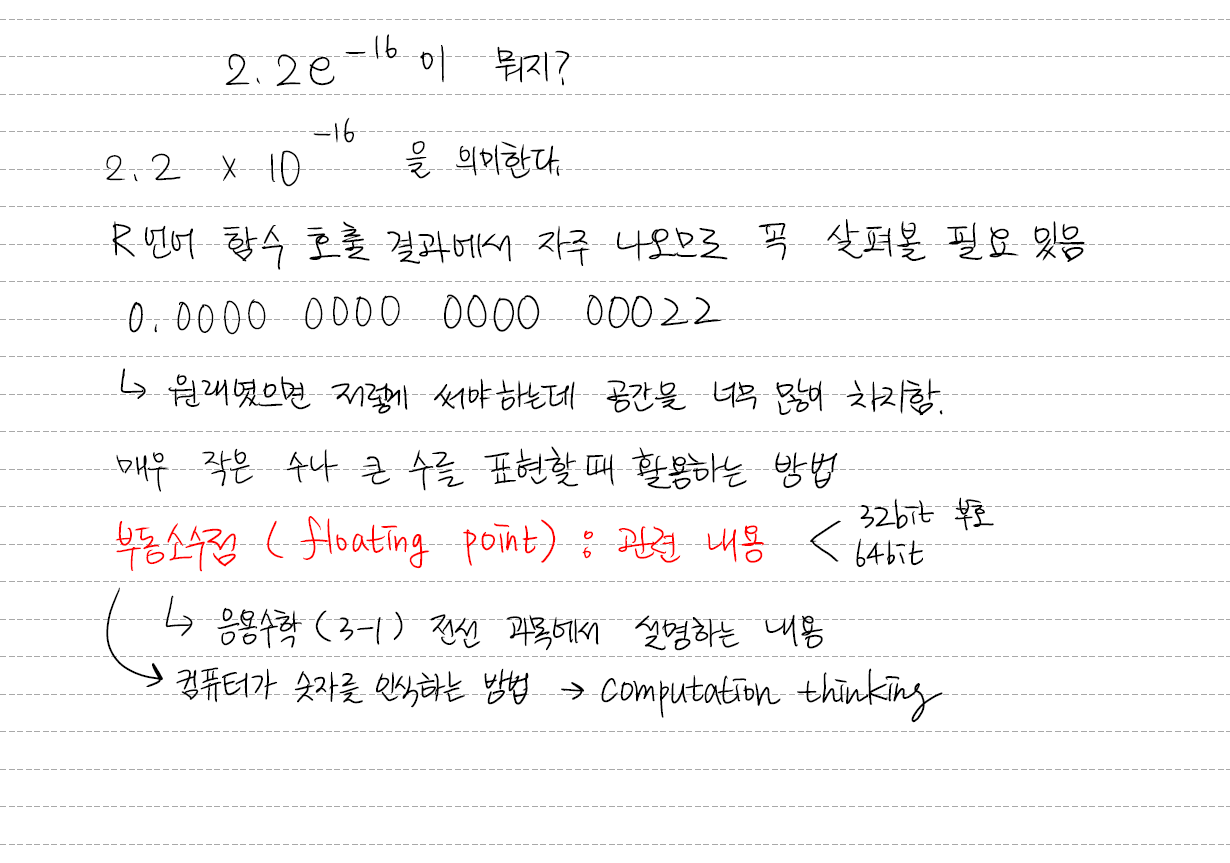 2.2e⁻¹⁶ 이 뭐지?
2.2 × 10⁻¹⁶ 을 의미한다.
R언어 함수 호출 결과에서 자주 나오므로 꼭 살펴볼 필요 있음
0.0000 0000 0000 00022
↳ 원래였으면 저렇게 써야하는데 공간을 너무 많이 차지함.
매우 작은 수나 큰 수를 표현할 때 활용하는 방법
부동소수점 (floating point) : 관련 내용 < 32bit 부호
64bit
↳ 응용수학 (3-1) 전선 과목에서 설명하는 내용
→ 컴퓨터가 숫자를 인식하는 방법 → computation thinking